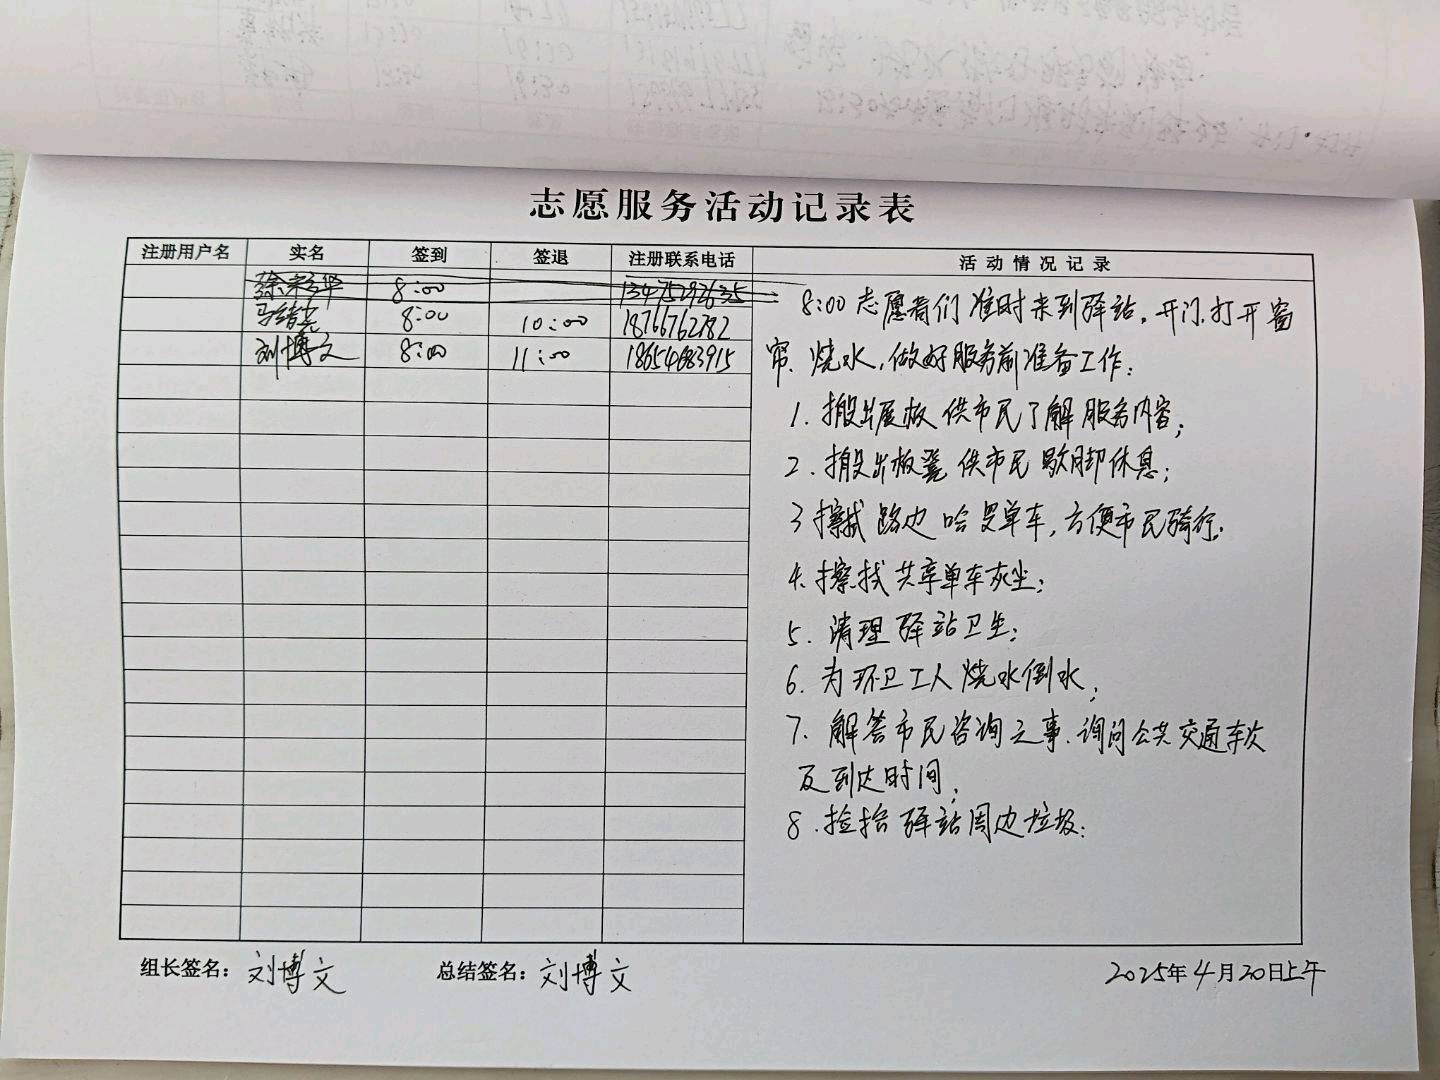 志愿服务活动记录表
注册用户名 实名 签到 签退 注册联系电话 活动情况记录
徐彩华 8:00 13475292635
马 8:00 10:00 18766762782
刘博文 8:00 11:00 18654683915
8:00志愿者们准时来到驿站,开门、打开窗
帘、烧水,做好服务前准备工作:
1. 搬出展板供市民了解服务内容;
2. 搬出板凳供市民歇脚休息;
3 擦拭路边哈罗单车,方便市民骑行;
4. 擦拭共享单车灰尘;
5. 清理驿站卫生;
6. 为环卫工人烧水倒水;
7. 解答市民咨询之事、询问公共交通车次
及到达时间;
8. 捡拾驿站周边垃圾;
组长签名:刘博文 总结签名:刘博文 2025年4月20日上午